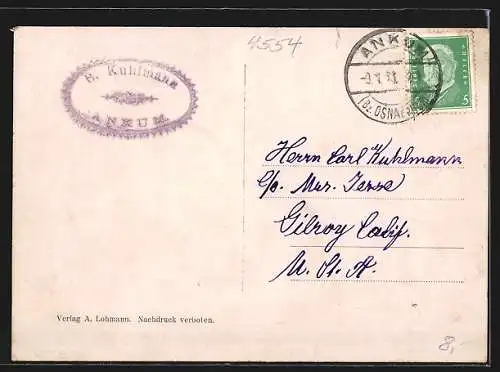 4554
B. Kuhlmann
ANKUM
ANKUM
(Bz. OSNABR
5
Herrn Carl Kuhlmann
c/o Mr. Jesse
Gilroy Calif.
U. St. A.
Verlag A. Lohmann. Nachdruck verboten.
8,-